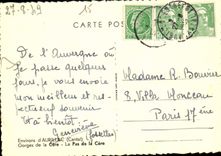 27-8-49
15
CARTE POS
De l'Auvergne où
je passe quelques
jours, je vous envoie
mon meilleur et res-
pectueux souvenir
A bientôt.
Geneviève
Madame R. Bouvier
8, Villa Monceau
Paris 17ème
Environs d'AURILLAC (Cantal)
Gorges de la Cère - Le Pas de la Cère